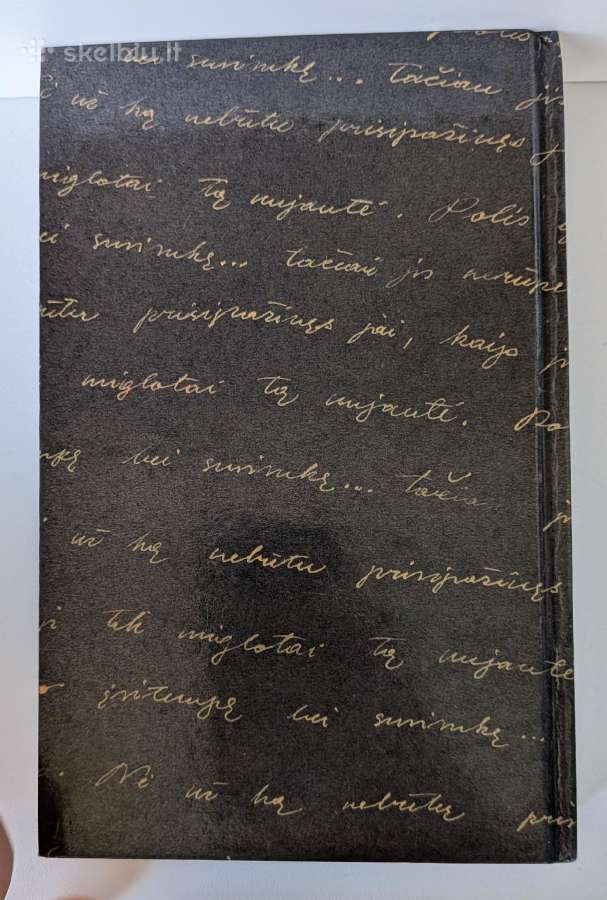 skelbiu.lt
bei surinkę... tačiau jis
už ką nebūtu prisipažinęs j
miglotai tą nujautė. Polis
ei surinkę... tačiau jis nerūpe
ūtu prisipažinęs jai, kaip j
miglotai tą nujautė. Po
nkę bei surinkę... tačia j
už ką nebūtu prisipažinęs
ji tik miglotai tą nujautė
įsitempę bei surinkę...
Ni už ką nebūtų pris